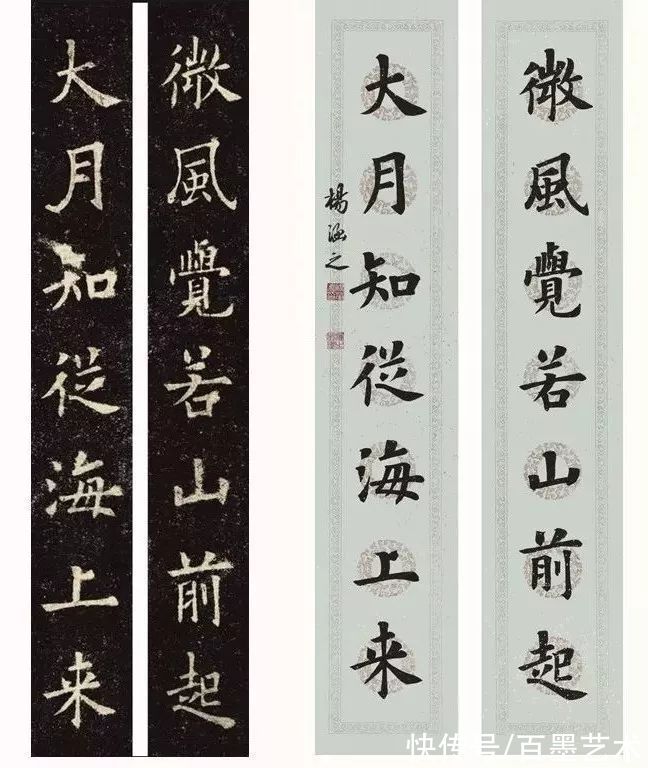 微風覺若山前起
大月知從海上来
微風覺若山前起
大月知從海上来
楊涵之
快传号/百墨艺术